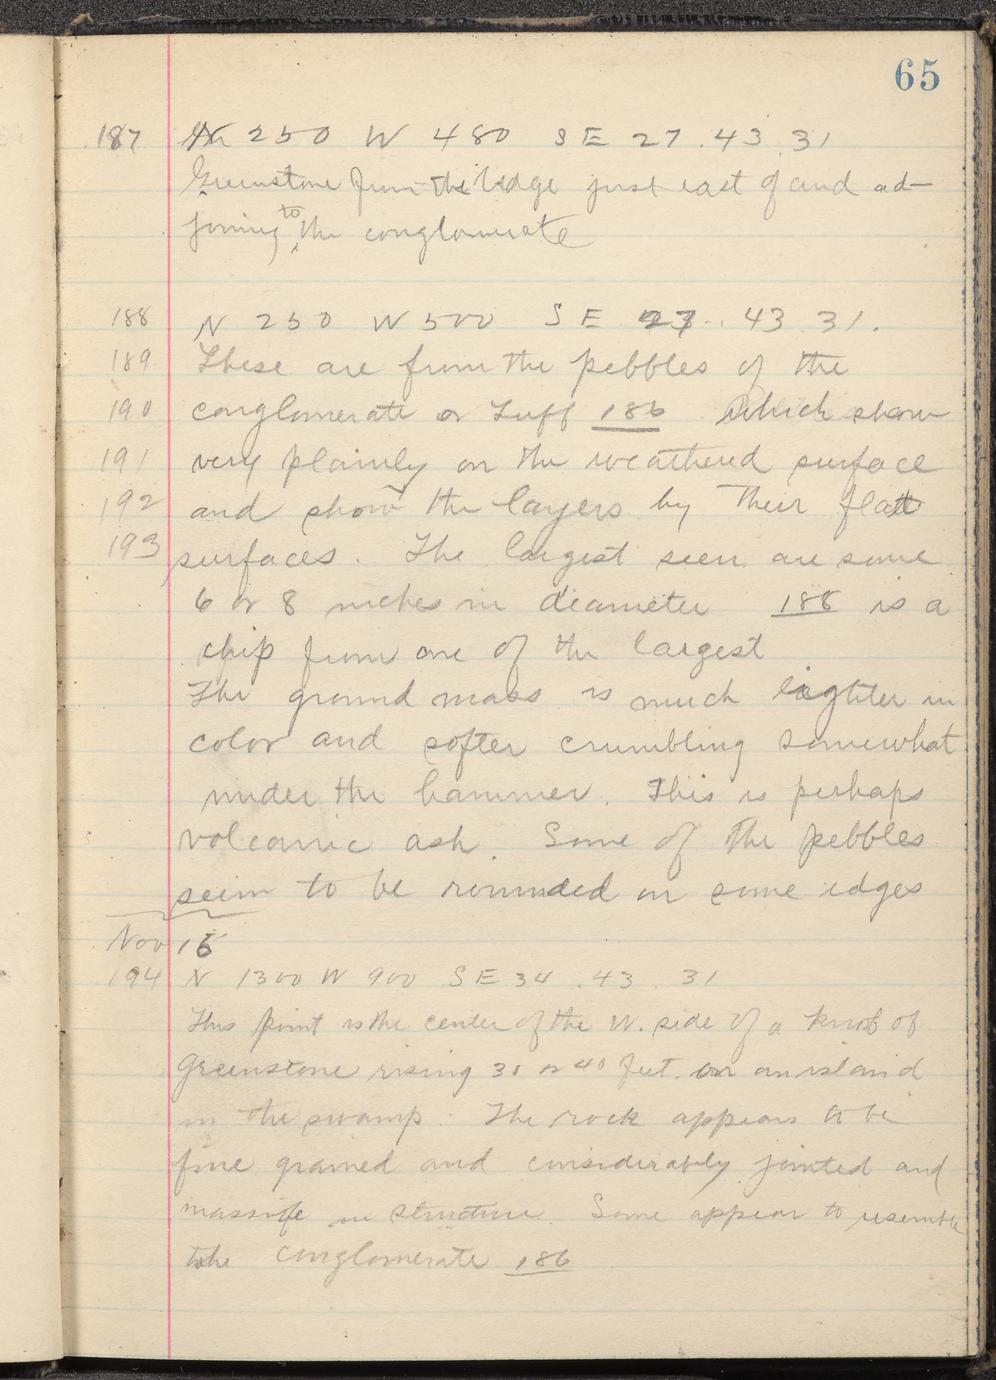 65
187 N 250 W 480 SE 27.43.31
Greenstone from the ledge just east of and ad-
joining to the conglomerate
188 N 250 W 500 SE 27. 43 31.
189 These are from the pebbles of the
190 conglomerate or Tuff 186 which show
191 very plainly on the weathered surface
192 and show the layers by their flat
193 surfaces. The largest seen are some
6 or 8 inches in diameter 188 is a
chip from one of the largest
The ground mass is much lighter in
color and softer crumbling somewhat
under the hammer. This is perhaps
volcanic ash. Some of the pebbles
seem to be rounded on some edges
Nov 15
194 N 1300 W 900 SE 34.43.31
This point is the center of the W. side of a knob of
Greenstone rising 30 or 40 feet on an island
in the swamp. The rock appears to be
fine grained and considerably jointed and
massive in structure. Some appear to resemble
the conglomerate 186